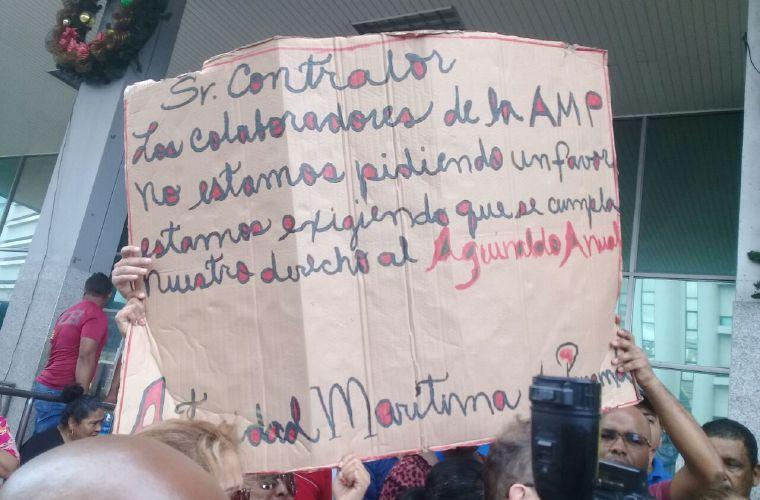 Sr. Contralor
Los colaboradores de la AMP
no estamos pidiendo un favor
estamos exigiendo que se cumpla
nuestro derecho al Aguinaldo Anual
Marítima